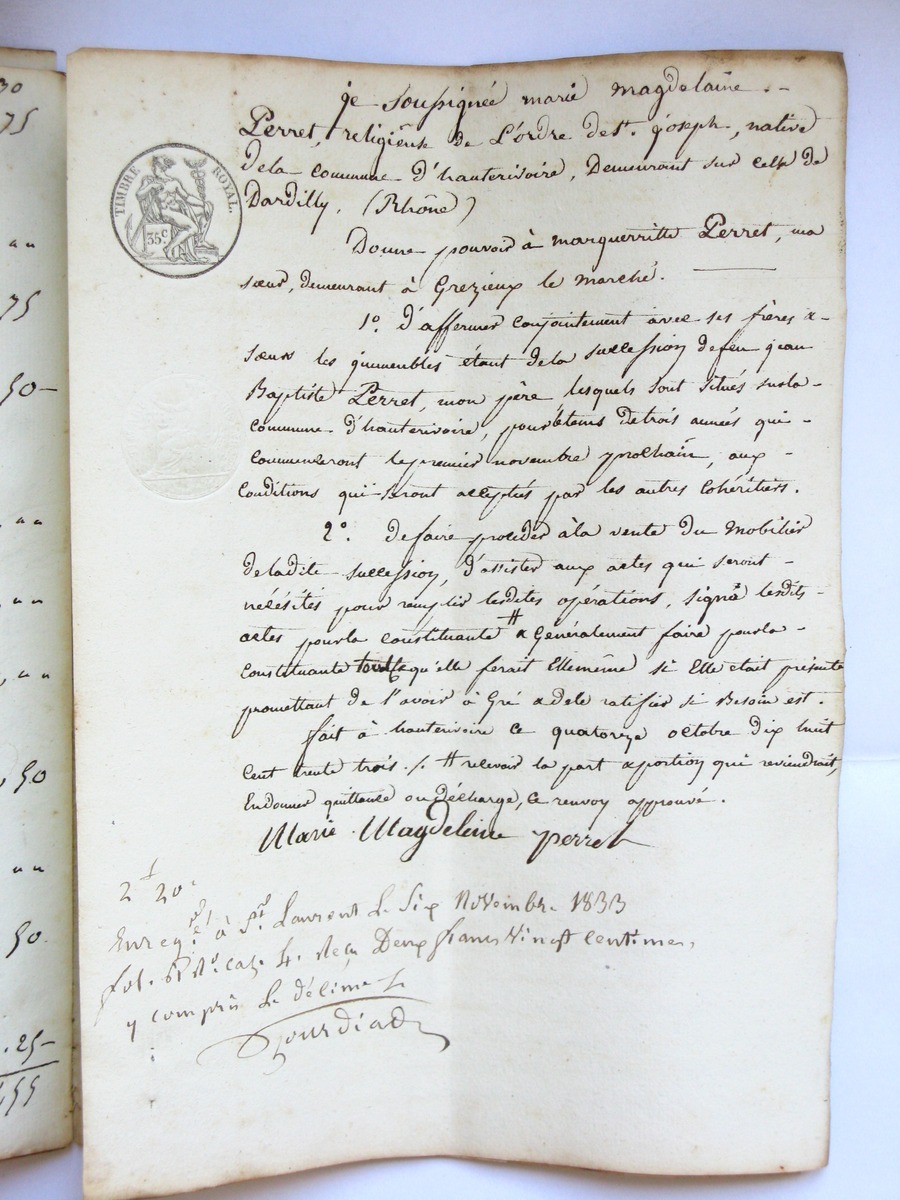 je soussignée marie magdelaine
Perret, religieuse de L'ordre de st. joseph, native
de la commune d'hauterivoire, Demeurant sur celle de
Dardilly, (Rhône)
TIMBRE ROYAL.
35 c.
Donne pouvoir à marguerritte Perret, ma
sœur, demeurant à Grezieux le marché.
1o. d'affermer conjointement avec ses frères &
sœurs les jmmeubles étant de la succession de feu jean
Baptiste Perret, mon père lesquels sont situés sur la
commune d'hauterivoire, pour le tems de trois années qui
commenceront le premier novembre prochain, aux
conditions qui seront acceptés par les autres cohéritiers.
2o. de faire procéder à la vente du mobilier
de la dite succession, d'assister aux actes qui seront
nécésités pour remplir lesdites opérations, signé lesdits
actes pour la constituante # & Généralement faire pour la
constituante tout ce qu'elle ferait Elle même si Elle était présente
promettant de l'avoir à Gré & de le ratifier si Besoin est.
fait à hauterivoire ce quatorze octobre dix huit
cent trente trois ./. # recevoir la part & portion qui reviendrait,
En donner quittance ou décharge, ce renvoy approuvé.
Marie Magdeleine perret
2 f 20 c
Enregré à St. Laurent le Six Novembre 1833
fol. Ro. caze 4. reçu Deux francs Vingt centimes,
y compris le décime
30
75
" "
75
50
" "
" "
" "
50
" "
50.
. 25
455